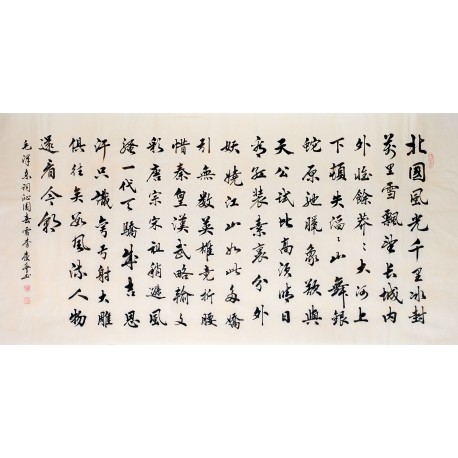 北國風光千里冰封
萬里雪飄望長城內
外惟餘莽〻大河上
下頓失滔〻山舞銀
蛇原馳臘象欲與
天公試比高須晴日
看紅裝素裹分外
妖嬈江山如此多嬌
引無數英雄竞折腰
惜秦皇漢武略輸文
彩唐宗宋祖稍遜風
騷一代天驕成吉思
汗只識彎弓射大雕
俱往矣數風流人物
還看今朝
毛澤東詞沁園春雪李